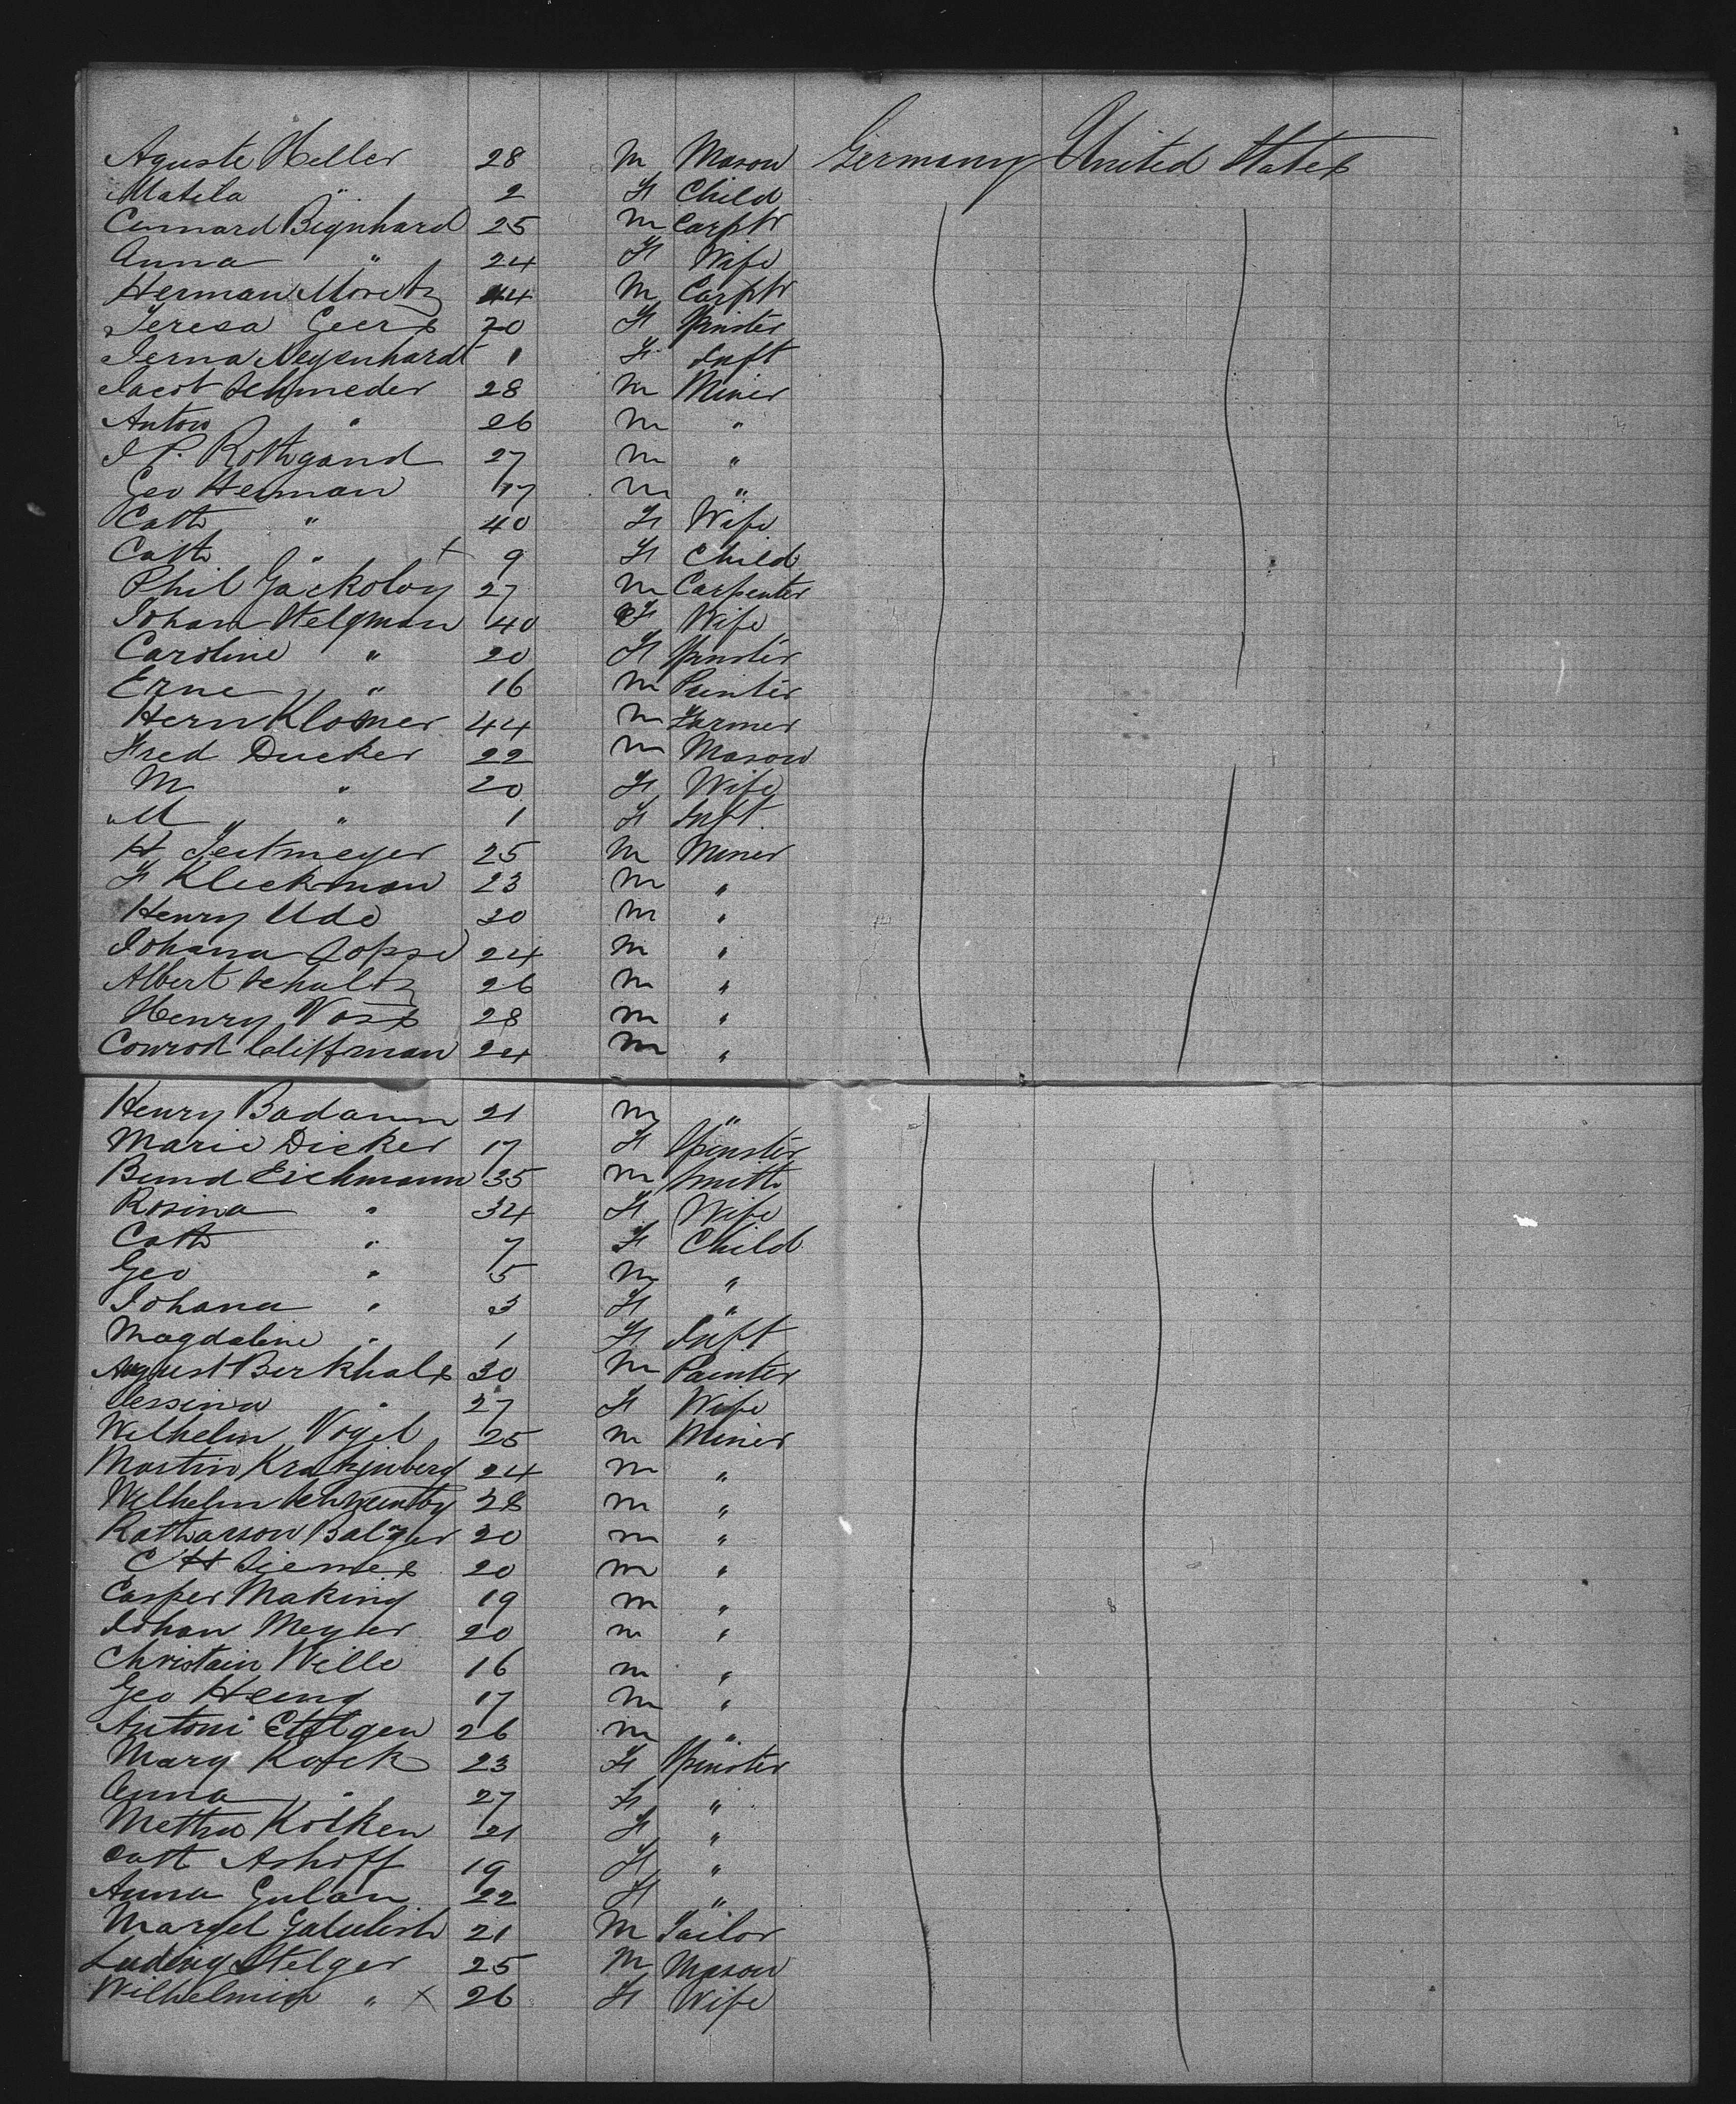 Aguste Heller 28 M Mason Germany United States
Matila " 2 F Child
Cunnard Bignhard 25 M Carptr
Anna " 24 F Wife
Herman Moretz 44 M Carptr
Teresa Geers 20 F Spinster
Ierna Meyenhardt 1 F Inft
Jacob Schmeder 28 M Miner
Anton " 26 M "
I P. Rothgand 27 M "
Geo Heiman 17 M "
Cath " 40 F Wife
Cath " X 9 F Child
Phil Jackoloy 27 M Carpenter
Johan Stelgman 40 F Wife
Caroline " 20 F Spinster
Erne " 16 M Painter
Hern Klosner 44 M Farmer
Fred Ducker 22 M Mason
M " 20 F Wife
M " 1 F Inft
H Testmeyer 25 M Miner
F Kleckman 23 M "
Henry Ude 30 M "
Johana Popse 24 M "
Albert Schultz 26 M "
Henry Voss 28 M "
Conrod Cliffman 24 M "
Henry Badamm 21 M "
Marie Dicker 17 F Spinster
Bernd Eichmann 35 M Smith
Rosina " 34 F Wife
Cath " 7 F Child
Geo " 5 M "
Johana " 3 F "
Magdaline " 1 F Inft
August Berkhals 30 M Painter
Cessina " 27 F Wife
Wilhelm Vogel 25 M Miner
Martin Krakenberg 24 M "
Wilhelm 28 M "
Balzer 20 M "
C H Siemes 20 M "
Casper Making 19 M "
Johan Meyter 20 M "
Christain Wille 16 M "
Geo Heing 17 M "
Antoni Ettlgen 26 M "
Mary Kofck 23 F Spinster
Anna " 27 F "
Metha Kolken 21 F "
Cath Ashoff 19 F "
Anna Gulan 22 F "
Margel 21 M Tailor
Ludwig Stelger 25 M Mason
Wilhelmin " X 26 F Wife